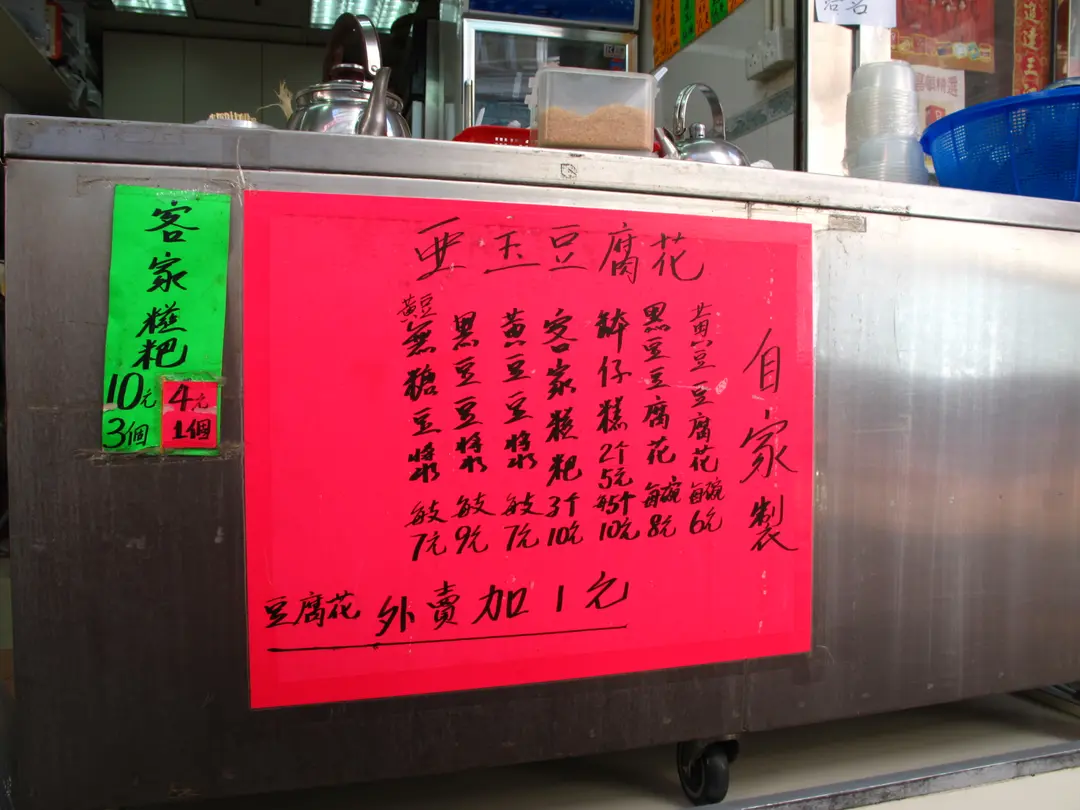 亜玉豆腐花
自家製
黃豆豆腐花 每碗 6元
黑豆豆腐花 每碗 8元
缽仔糕 2个 5元 每5个 10元
客家糍粑 3个 10元
黃豆豆漿 每支 7元
黑豆豆漿 每支 9元
黃豆無糖豆漿 每支 7元
豆腐花 外賣加1元
客家糍粑
10元
3個
4元
1個